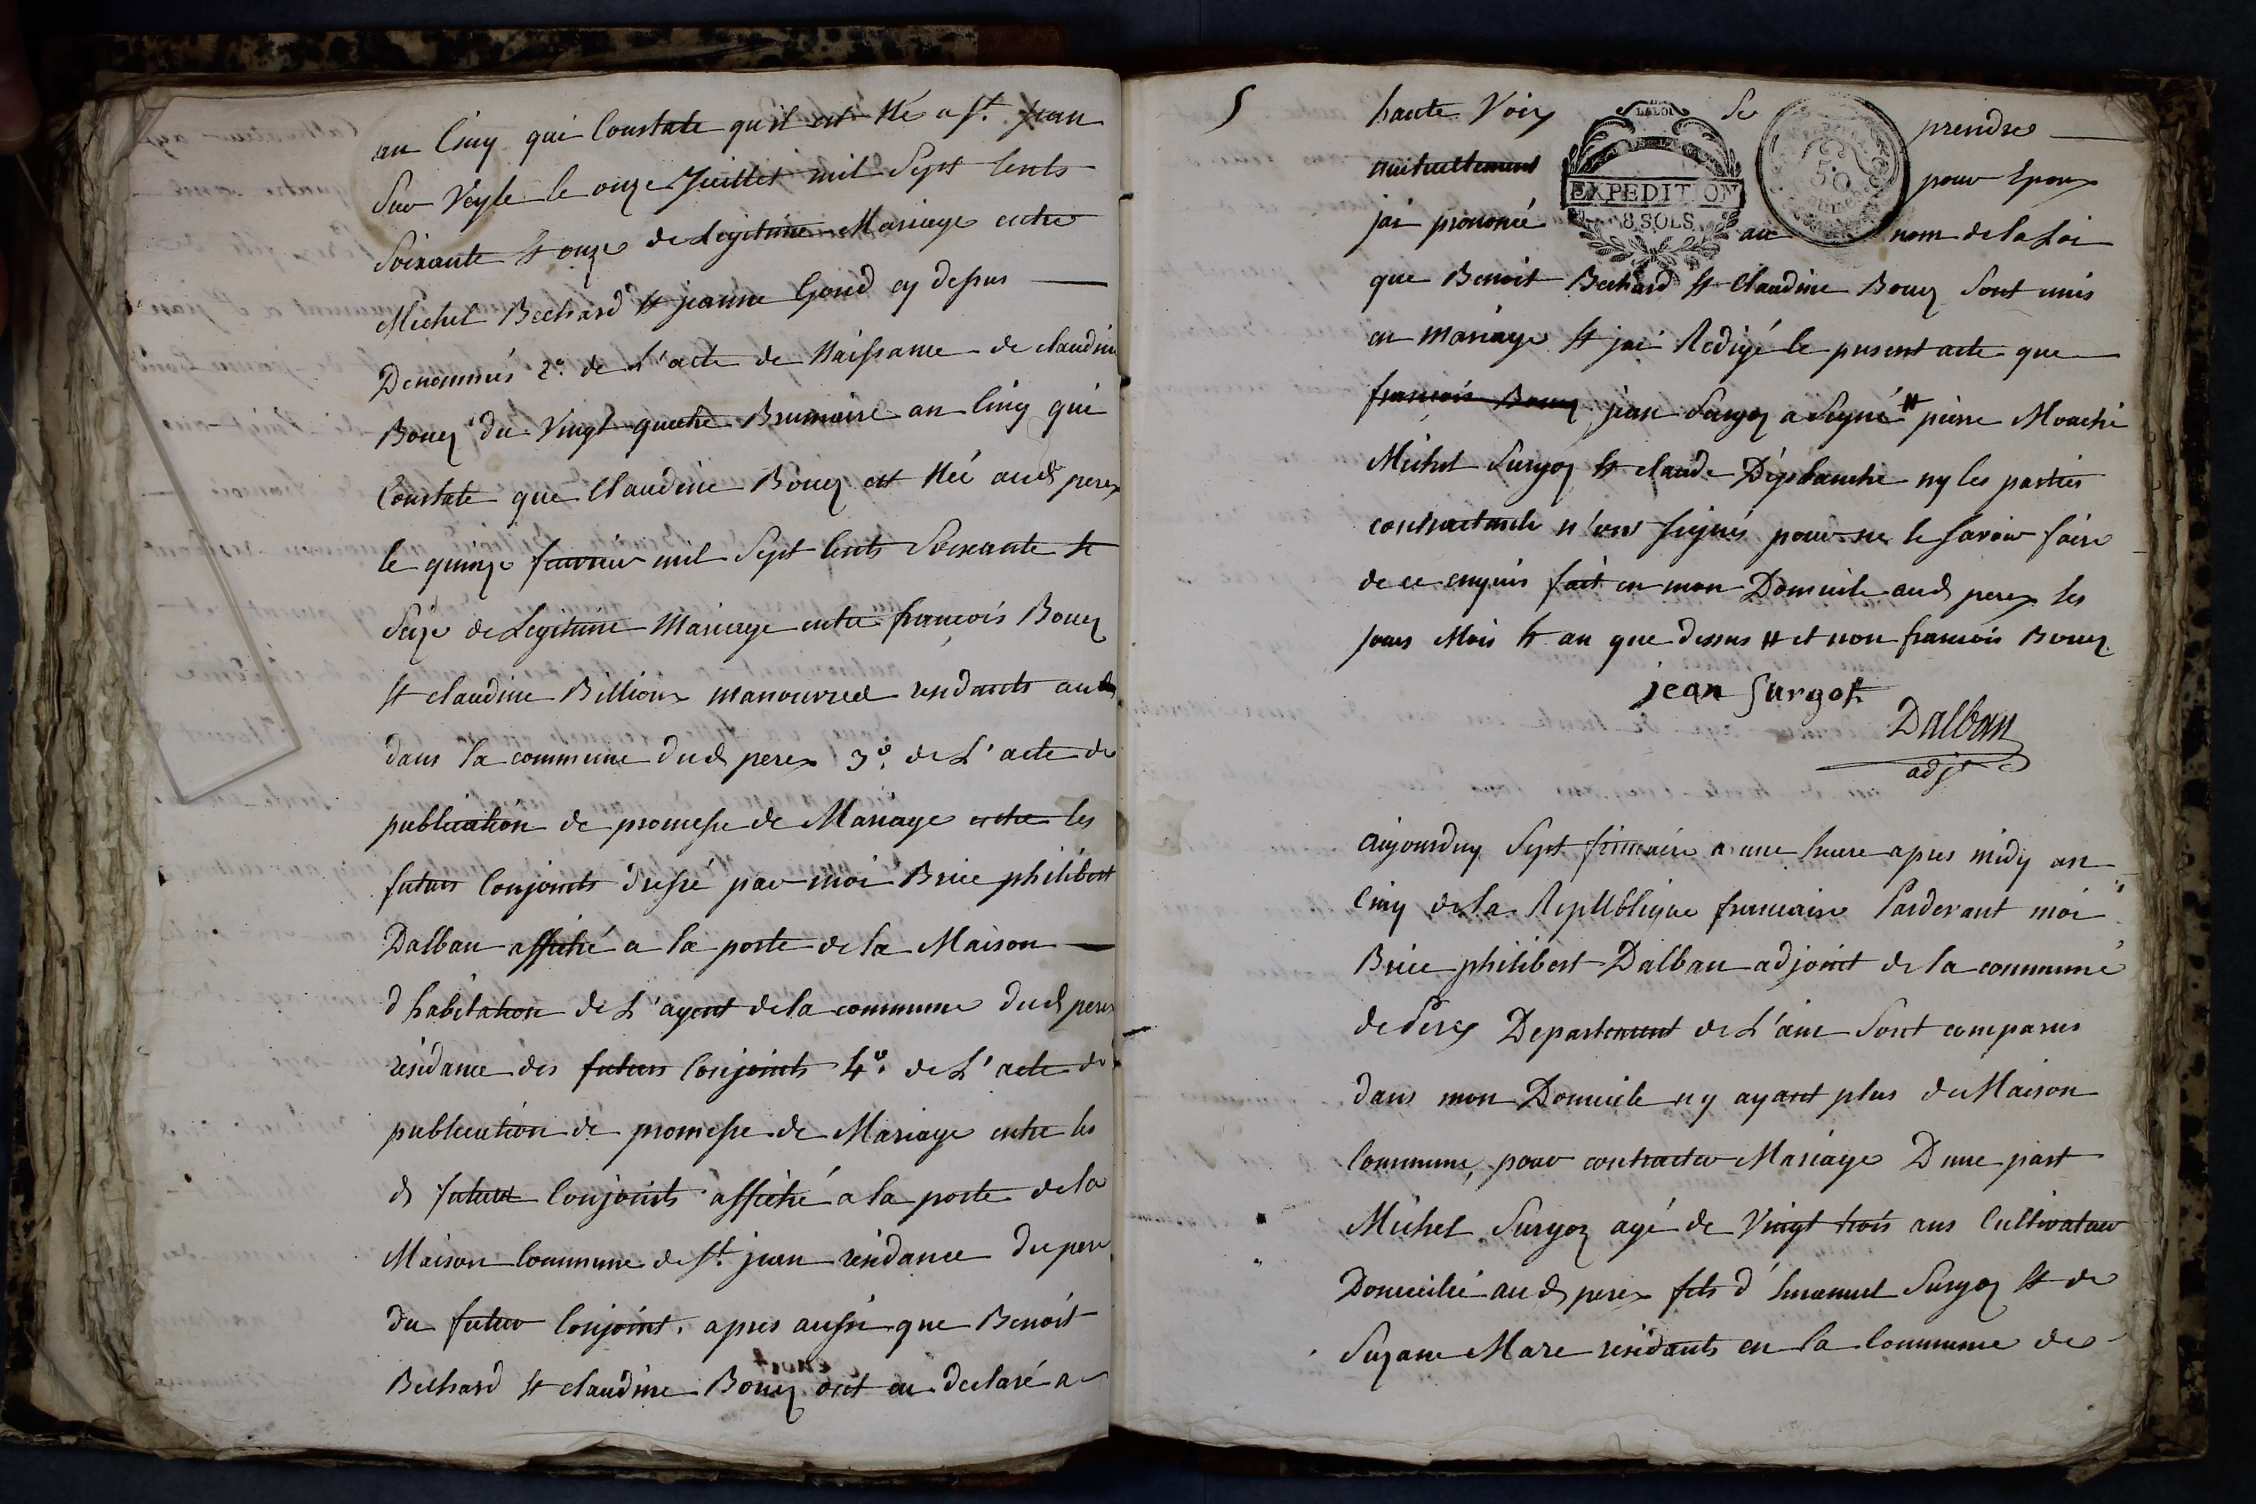 an Cinq qui Constate qu'il est né a St. Jean
Sur Veyle le onze Juillet mil Sept Cents
Soixante & onze de Legitime Mariage entre
Michel Bechard & jeanne Goud cy dessus
Denommés 2°. de L'acte de Naissance de claudine
Bouez du Vingt quatre Brumaire an Cinq qui
Constate que Claudine Bouez est Née aud perex
le quinze fevrier mil Sept Cents Soixante &
Seize de Legitime Mariage entre françois Bouez
& claudine Billioux manouvres residants aud
dans la commune dud perex 3°. de L'acte de
publication de promesse de Mariage entre les
futurs Conjoints dressé par moi Brice philibert
Dalban affiché a la porte de la Maison
d'habitation de L'agent de la commune dud perex
residance des futurs Conjoints 4°. de L'acte de
publication de promesse de Mariage entre les
d futurs Conjoints affiché a la porte de la
Maison Commune de St. jean residance du pere
du futur Conjoint. apres aussi que Benoit
Bechard & claudine Bouez ont eu declaré a
5
haute Voix Se prendre
mutuellement pour Epoux
jai prononcé au nom de la Loi
LA LOI
EXPEDITION
8 SOLS
50
que Benoit Bechard & Claudine Bouez Sont unis
en mariage & jai Redigé le present acte que
françois Bouez jean Surgoz a Signé # pierre Moachi
Michel Surgoz & claude Desplanche ny les parties
contractante n'ont Signés pour ne le Savoir faire
de ce enquis fait en mon Domicile aud perex les
jours Mois & an que dessus # et non francois Bouez
jean Surgot
Dalban
adjt
aujourduy Sept frimaire a une heure apres midy an
Cinq de la RepUblique francaise Pardevant moi
Brice philibert Dalban adjoint de la commune
de Perex Departement de L'ain Sont comparus
dans mon Domicile ny ayant plus de Maison
Commune, pour contracter Mariage Dune part
Michel Surgoz agé de Vingt trois ans Cultivateur
Domicilié aud perex fils d'Emanuel Surgoz & de
Suzane Mare residants en la Commune de